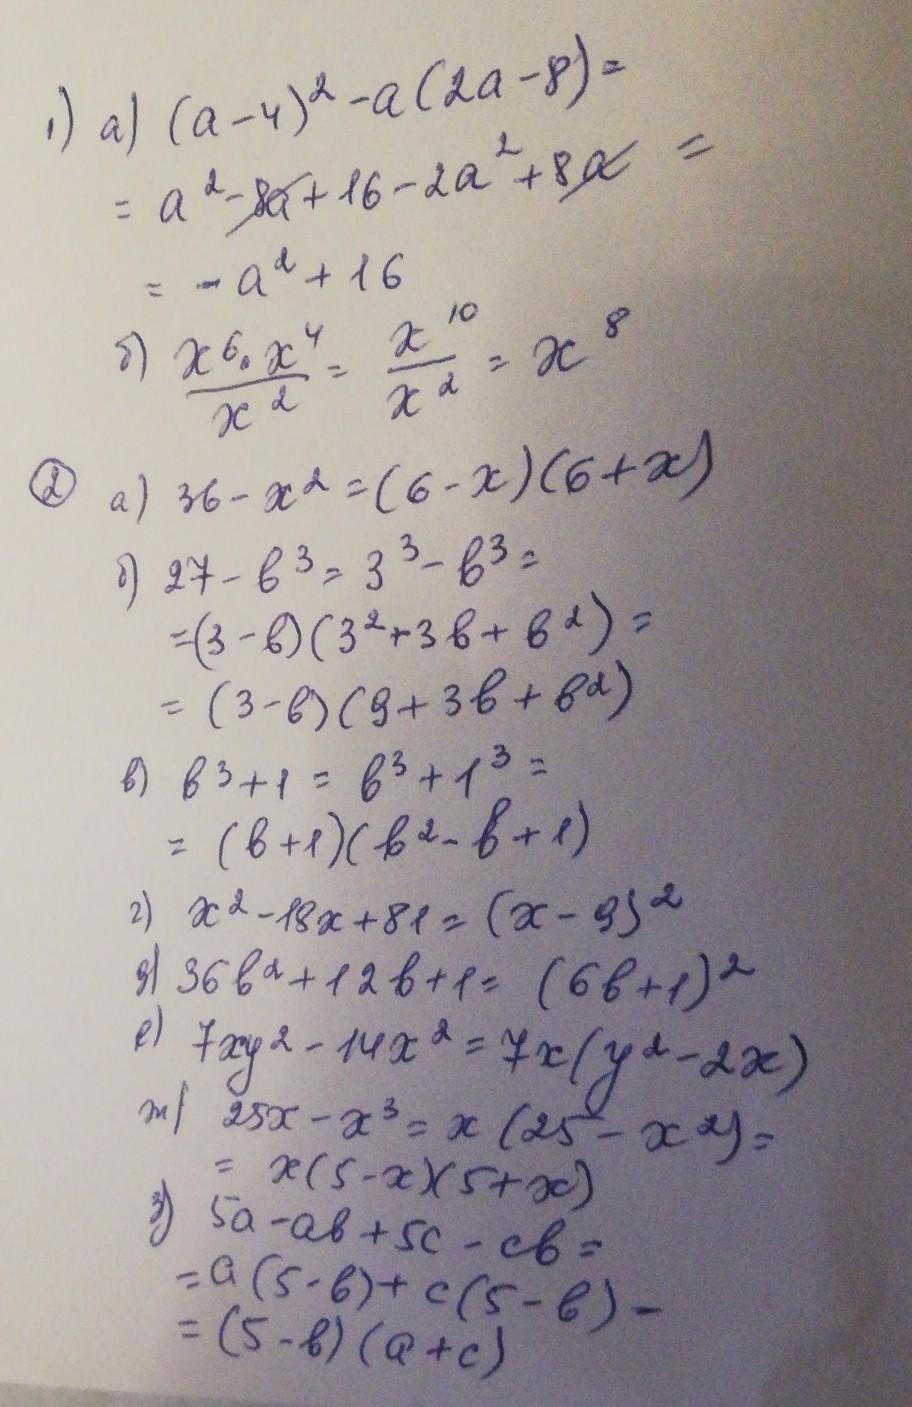 1) а) (a-4)² -a(2a-8)=
= a² - 8a + 16 - 2a² + 8a =
= -a² + 16
б) x⁶·x⁴/x² = x¹⁰/x² = x⁸
② а) 36 - x² = (6-x)(6+x)
б) 27 - b³ = 3³ - b³ =
=(3-b)(3²+3b+b²) =
= (3-b)(9+3b+b²)
в) b³+1 = b³+1³ =
= (b+1)(b²-b+1)
г) x²-18x+81 = (x-9)²
д) 36b²+12b+1 = (6b+1)²
е) 7xy² - 14x² = 7x(y²-2x)
ж) 25x - x³ = x(25 - x²) =
= x(5-x)(5+x)
з) 5a - ab + 5c - cb =
= a(5-b) + c(5-b) -
= (5-b)(a+c)